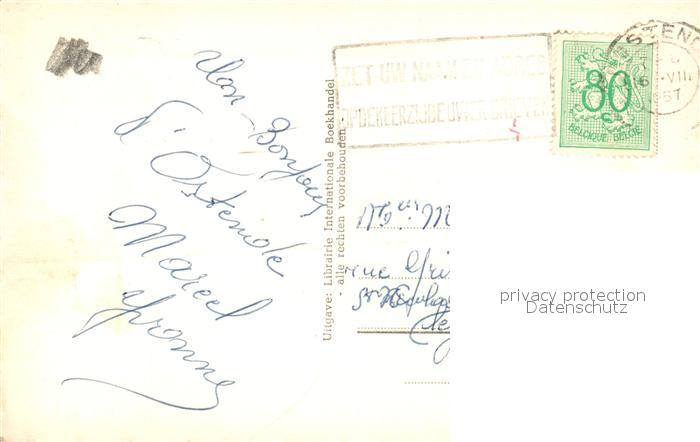 Bonjour
d'Ostende
Marcel
Yvonne
Uitgave: Librairie Internationale Boekhandel
- alle rechten voorbehouden -
ZET UW NAAM EN ADRES
OP DE KEERZIJDE UWER BRIEVEN
80
c
BELGIQUE BELGIE
OSTEND
6 -VIII
57
rue
privacy protection
Datenschutz